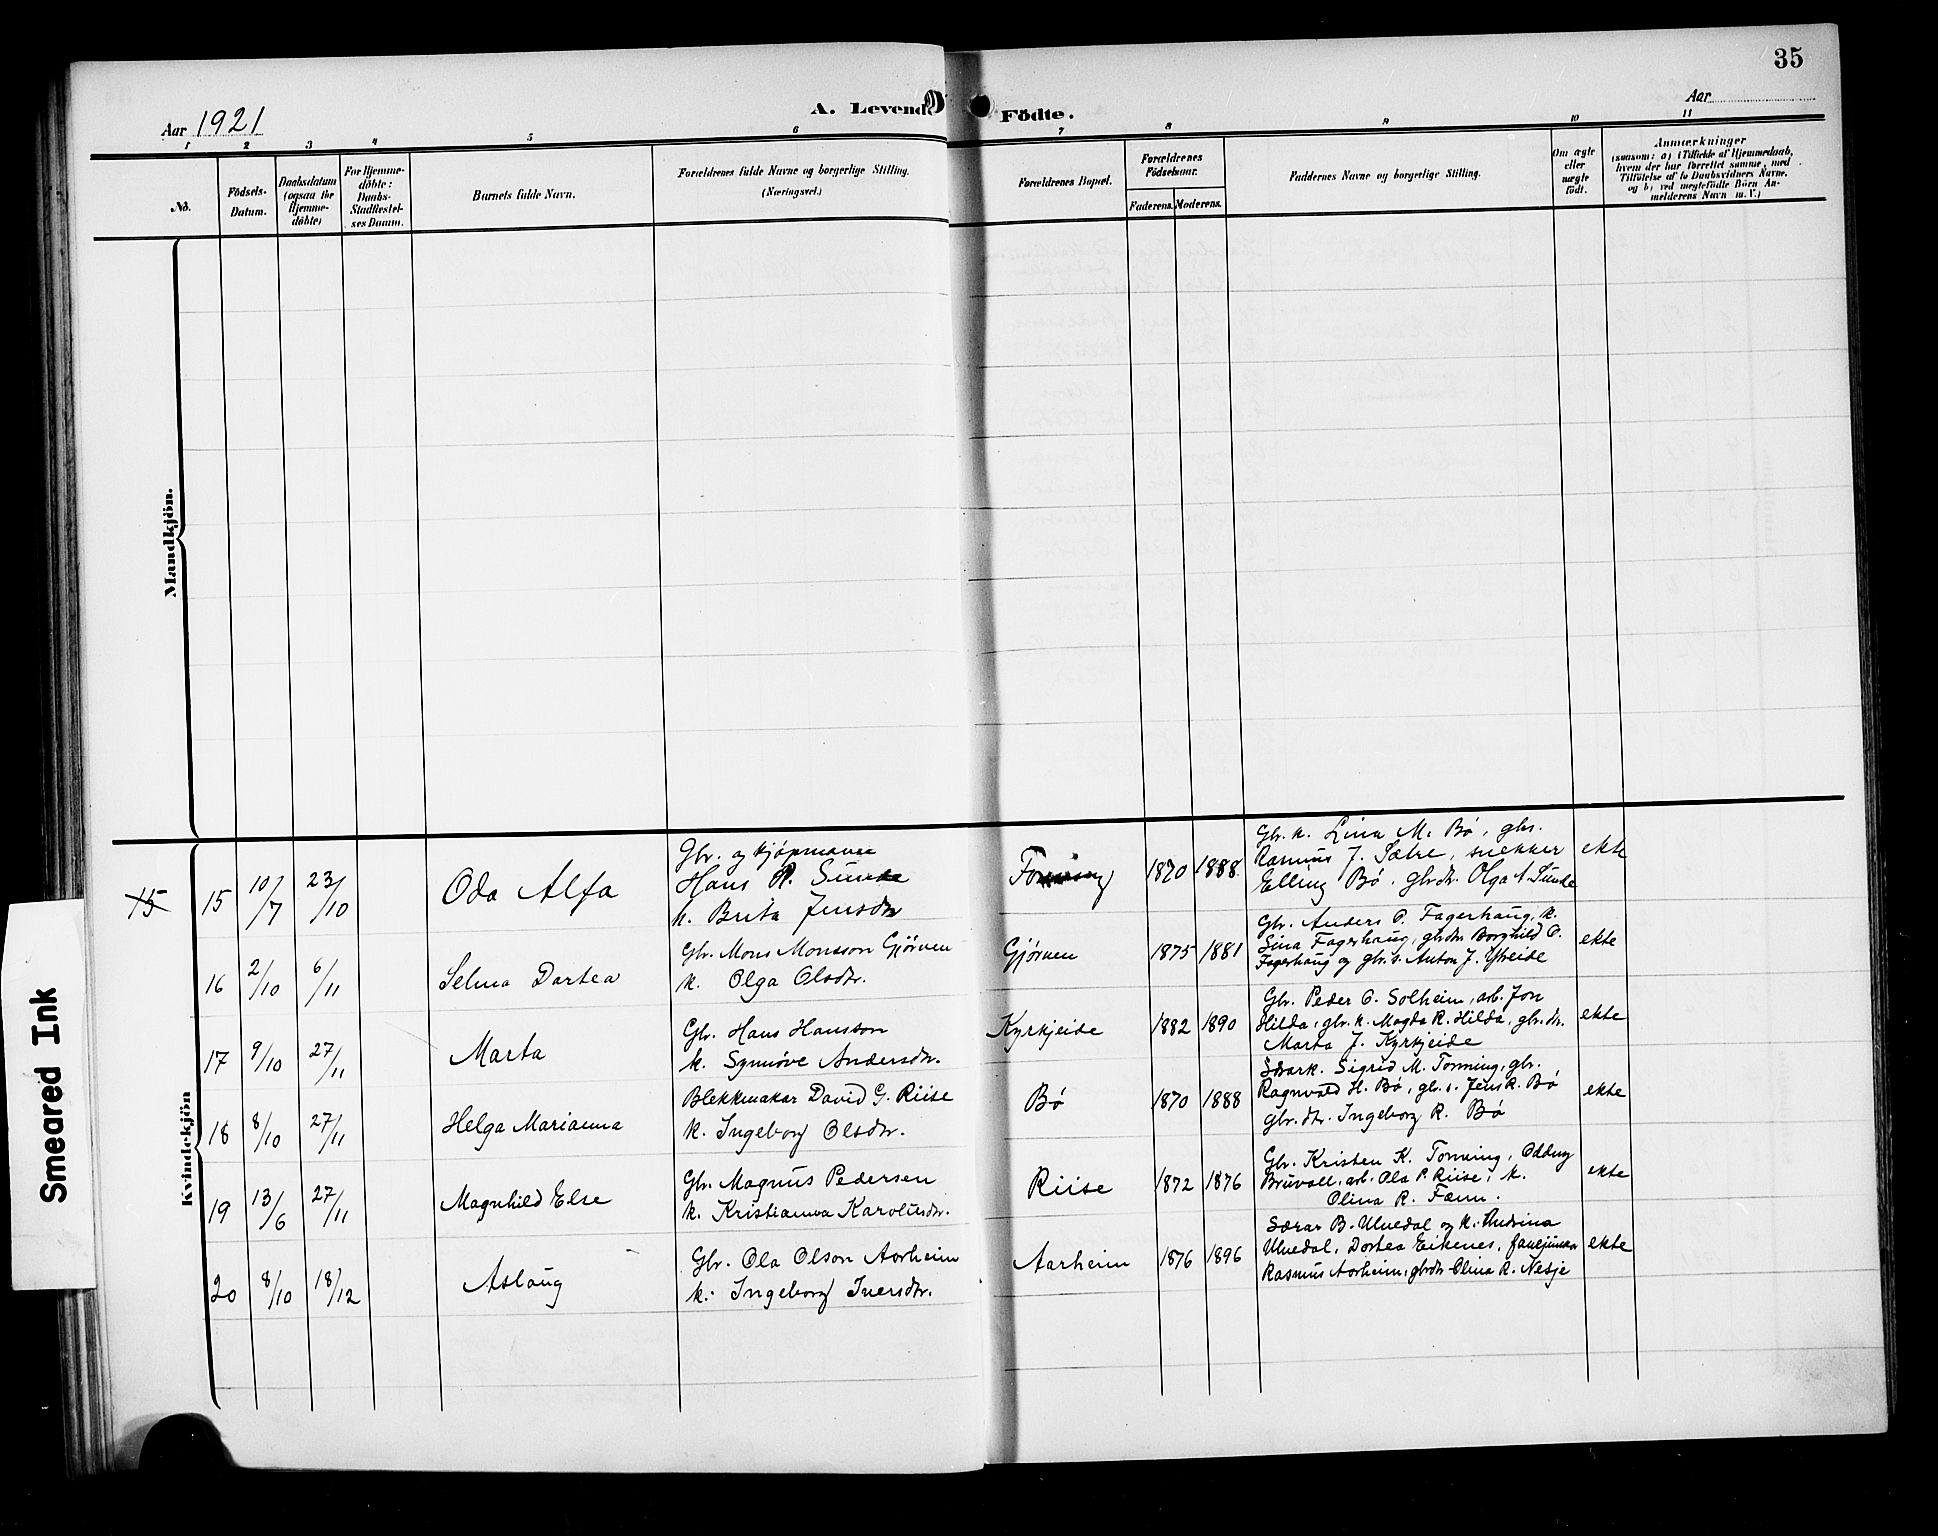 35
Aar 1921
A. Levende Födte.
Aar
1 2 3 4 5 6 7 8 9 10 11
No.
Födsels-
Datum.
Daabsdatum
(ogsaa for
Hjemme-
döbte)
For Hjemme-
döbte:
Daabs-
Stadfæstel-
ses Datum.
Barnets fulde Navn.
Forældrenes fulde Navne og borgerlige Stilling.
(Næringsvei.)
Forældrenes Bopæl.
Forældrenes
Födselsaar.
Faderens. Moderens.
Faddernes Navne og borgerlige Stilling.
Om ægte
eller
uægte
födt.
Anmærkninger
(saasom: a) i Tilfælde af Hjemmedaab,
hvem der har forrettet samme, med
Tilföielse af to Daabsvidners Navne,
og b) ved uægtefödte Börn An-
melderens Navn m. V.)
Mandkjön.
Kvindekjön
15
15 10/7 23/10
Oda Alfa
Gbr. og kjøpmann
Hans R. Sunde
k. Brita Jensdtr
Tonning
1870 1888.
Gbr. k. Lina M. Bø, gbr.
Rasmus J. Sætre, snekker
Elling Bø, gbrdtr. Olga A. Sunde
ekte
16 2/10 6/11
Selma Dortea
Gbr. Mons Monsson Gjørven
k. Olga Olsdtr.
Gjørven
1875 1881
Gbr. Anders O. Fagerhaug, k.
Sina Fagerhaug, gbrdtr Borghild O.
Fagerhaug og gbr.s. Anton J. Ytreide
ekte
17 9/10 27/11
Marta
Gbr. Hans Hansson
k. Synnøve Andersdtr.
Kyrkjeide
1882 1890
Gbr. Peder O. Solheim, arb. Jon
Hilda, gbr. k. Magda R. Hilda, gbr.dtr.
Marta J. Kyrkjeide
ekte
18 8/10 27/11
Helga Marianna
Blekkmakar David G. Riise
k. Ingeborg Olsdtr.
Bø
1870 1888
Sigrid M. Tonning, gbr.
Ragnvald H. Bø, gb.s. Jens K. Bø
Gbr.dtr. Ingeborg R. Bø
ekte
19 13/6 27/11
Magnhild Else
Gbr. Magnus Pedersen
k. Kristianna Karolusdtr.
Riise
1872 1876
Gbr. Kristen K. Tonning, Oddny
Bruvoll, arb. Ola P. Riise, k.
Olina R. Fænn.
ekte
20 8/10 18/12
Aslaug
Gbr. Ola Olson Aarheim
k. Ingeborg Iversdtr.
Aarheim
1876 1896
Lærar B. Ulvedal og k. Andrina
Ulvedal, Dortea Eikenes, fanejunkar
Rasmus Aarheim, gbrdtr Olina R. Nesje
ekte
Smeared Ink